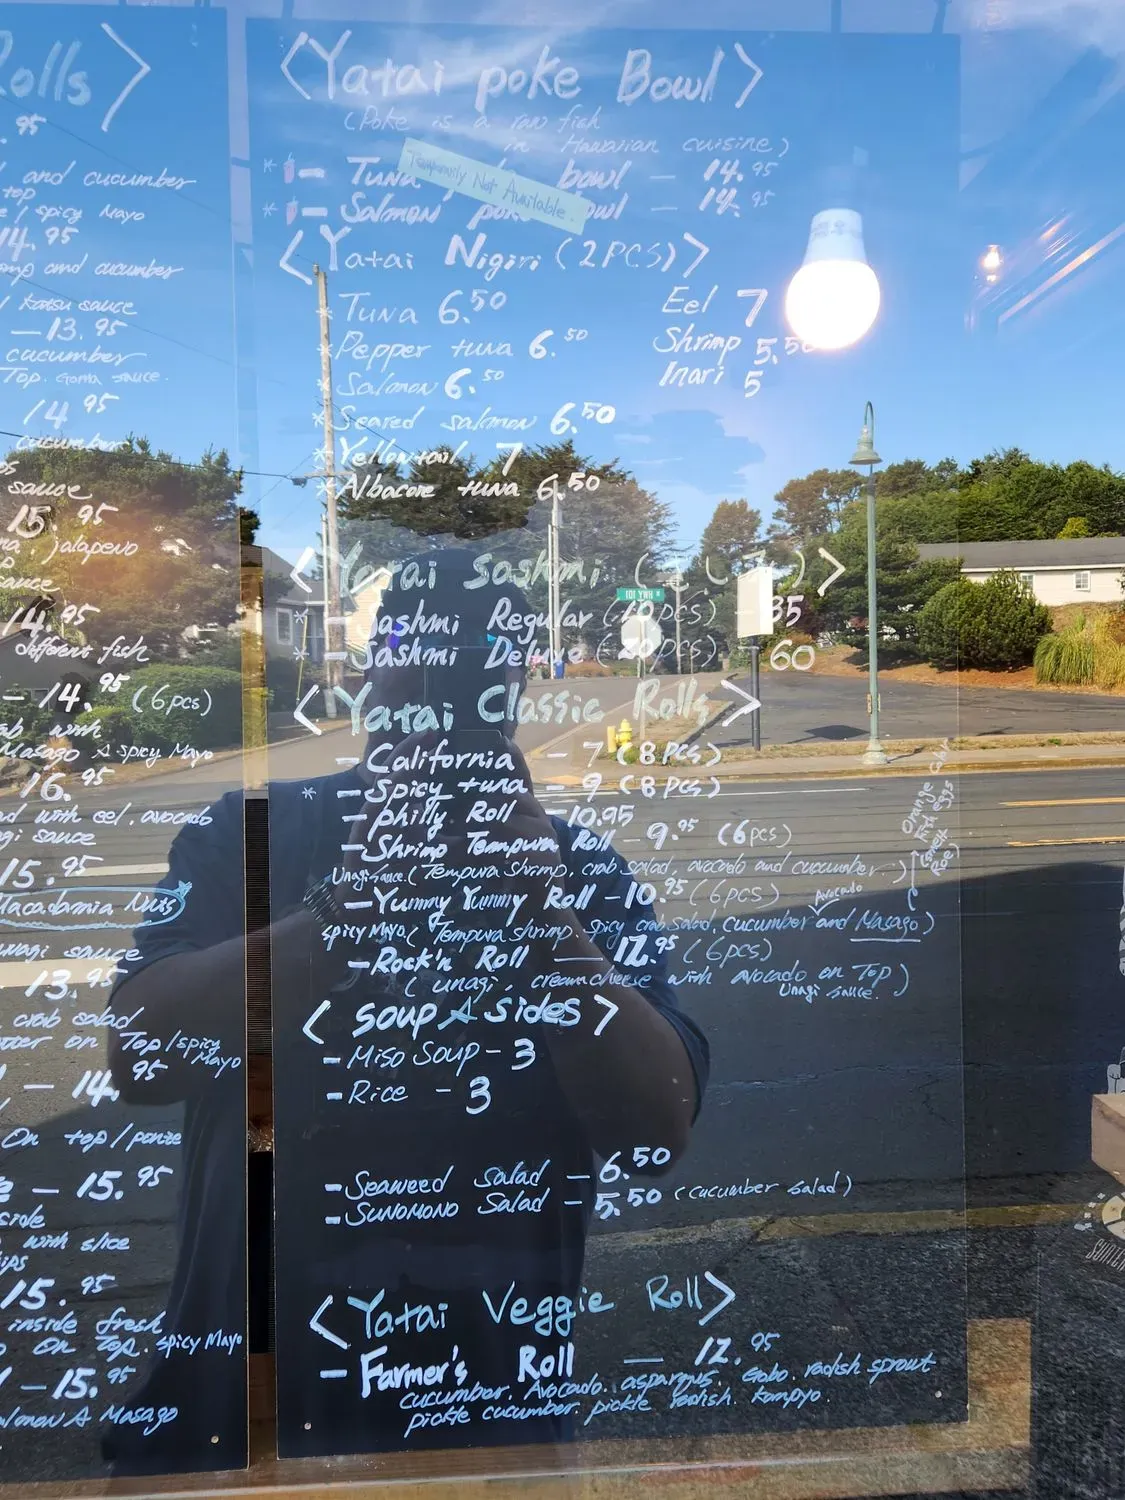 Rolls >
.95
and cucumber
top
/ spicy Mayo
14.95
and cucumber
/ katsu sauce
- 13.95
cucumber
Top. Gonta sauce.
14.95
cucumber
sauce
15.95
jalapeno
sauce
14.95
different fish
- 14.95 (6pcs)
with
Masago & spicy Mayo
16.95
with eel, avocado
sauce
15.95
Macadamia Nuts
unagi sauce
13.95
crab salad
on Top / spicy Mayo
- 14.95
On top / ponzu
- 15.95
with slice
15.95
inside fresh
On Top. spicy Mayo
- 15.95
& Masago
<Yatai poke Bowl>
(Poke is a raw fish
in Hawaiian cuisine)
* - Tuna bowl - 14.95
* - Salmon poke bowl - 14.95
Temporarily Not Available.
<Yatai Nigiri (2PCS)>
* Tuna 6.50
* Pepper tuna 6.50
* Salmon 6.50
* Seared salmon 6.50
* Yellowtail 7
* Albacore tuna 6.50
Eel 7
Shrimp 5.50
Inari 5
<Yatai Sashmi >
* - Sashmi Regular (10pcs) - 35
* - Sashmi Deluxe (20pcs) - 60
<Yatai Classic Rolls>
- California - 7 (8pcs)
* - Spicy tuna - 9 (8pcs)
- philly Roll - 10.95
- Shrimp Tempura Roll - 9.95 (6pcs)
Unagi sauce. (Tempura shrimp, crab salad, avocado and cucumber.)
- Yummy Yummy Roll - 10.95 (6pcs)
Avocado
spicy Mayo. (Tempura shrimp, spicy crab salad, cucumber and Masago)
Orange Fish eggs
(smelt Roe)
- Rock'n Roll - 12.95 (6pcs)
(unagi, creamcheese with avocado on Top)
Unagi sauce.
<Soup & Sides>
- Miso Soup - 3
- Rice - 3
- Seaweed Salad - 6.50
- Sunomono Salad - 5.50 (cucumber salad)
<Yatai Veggie Roll>
- Farmer's Roll - 12.95
cucumber. Avocado. asparagus. Gobo. radish sprout
pickle cucumber. pickle radish. kampyo.